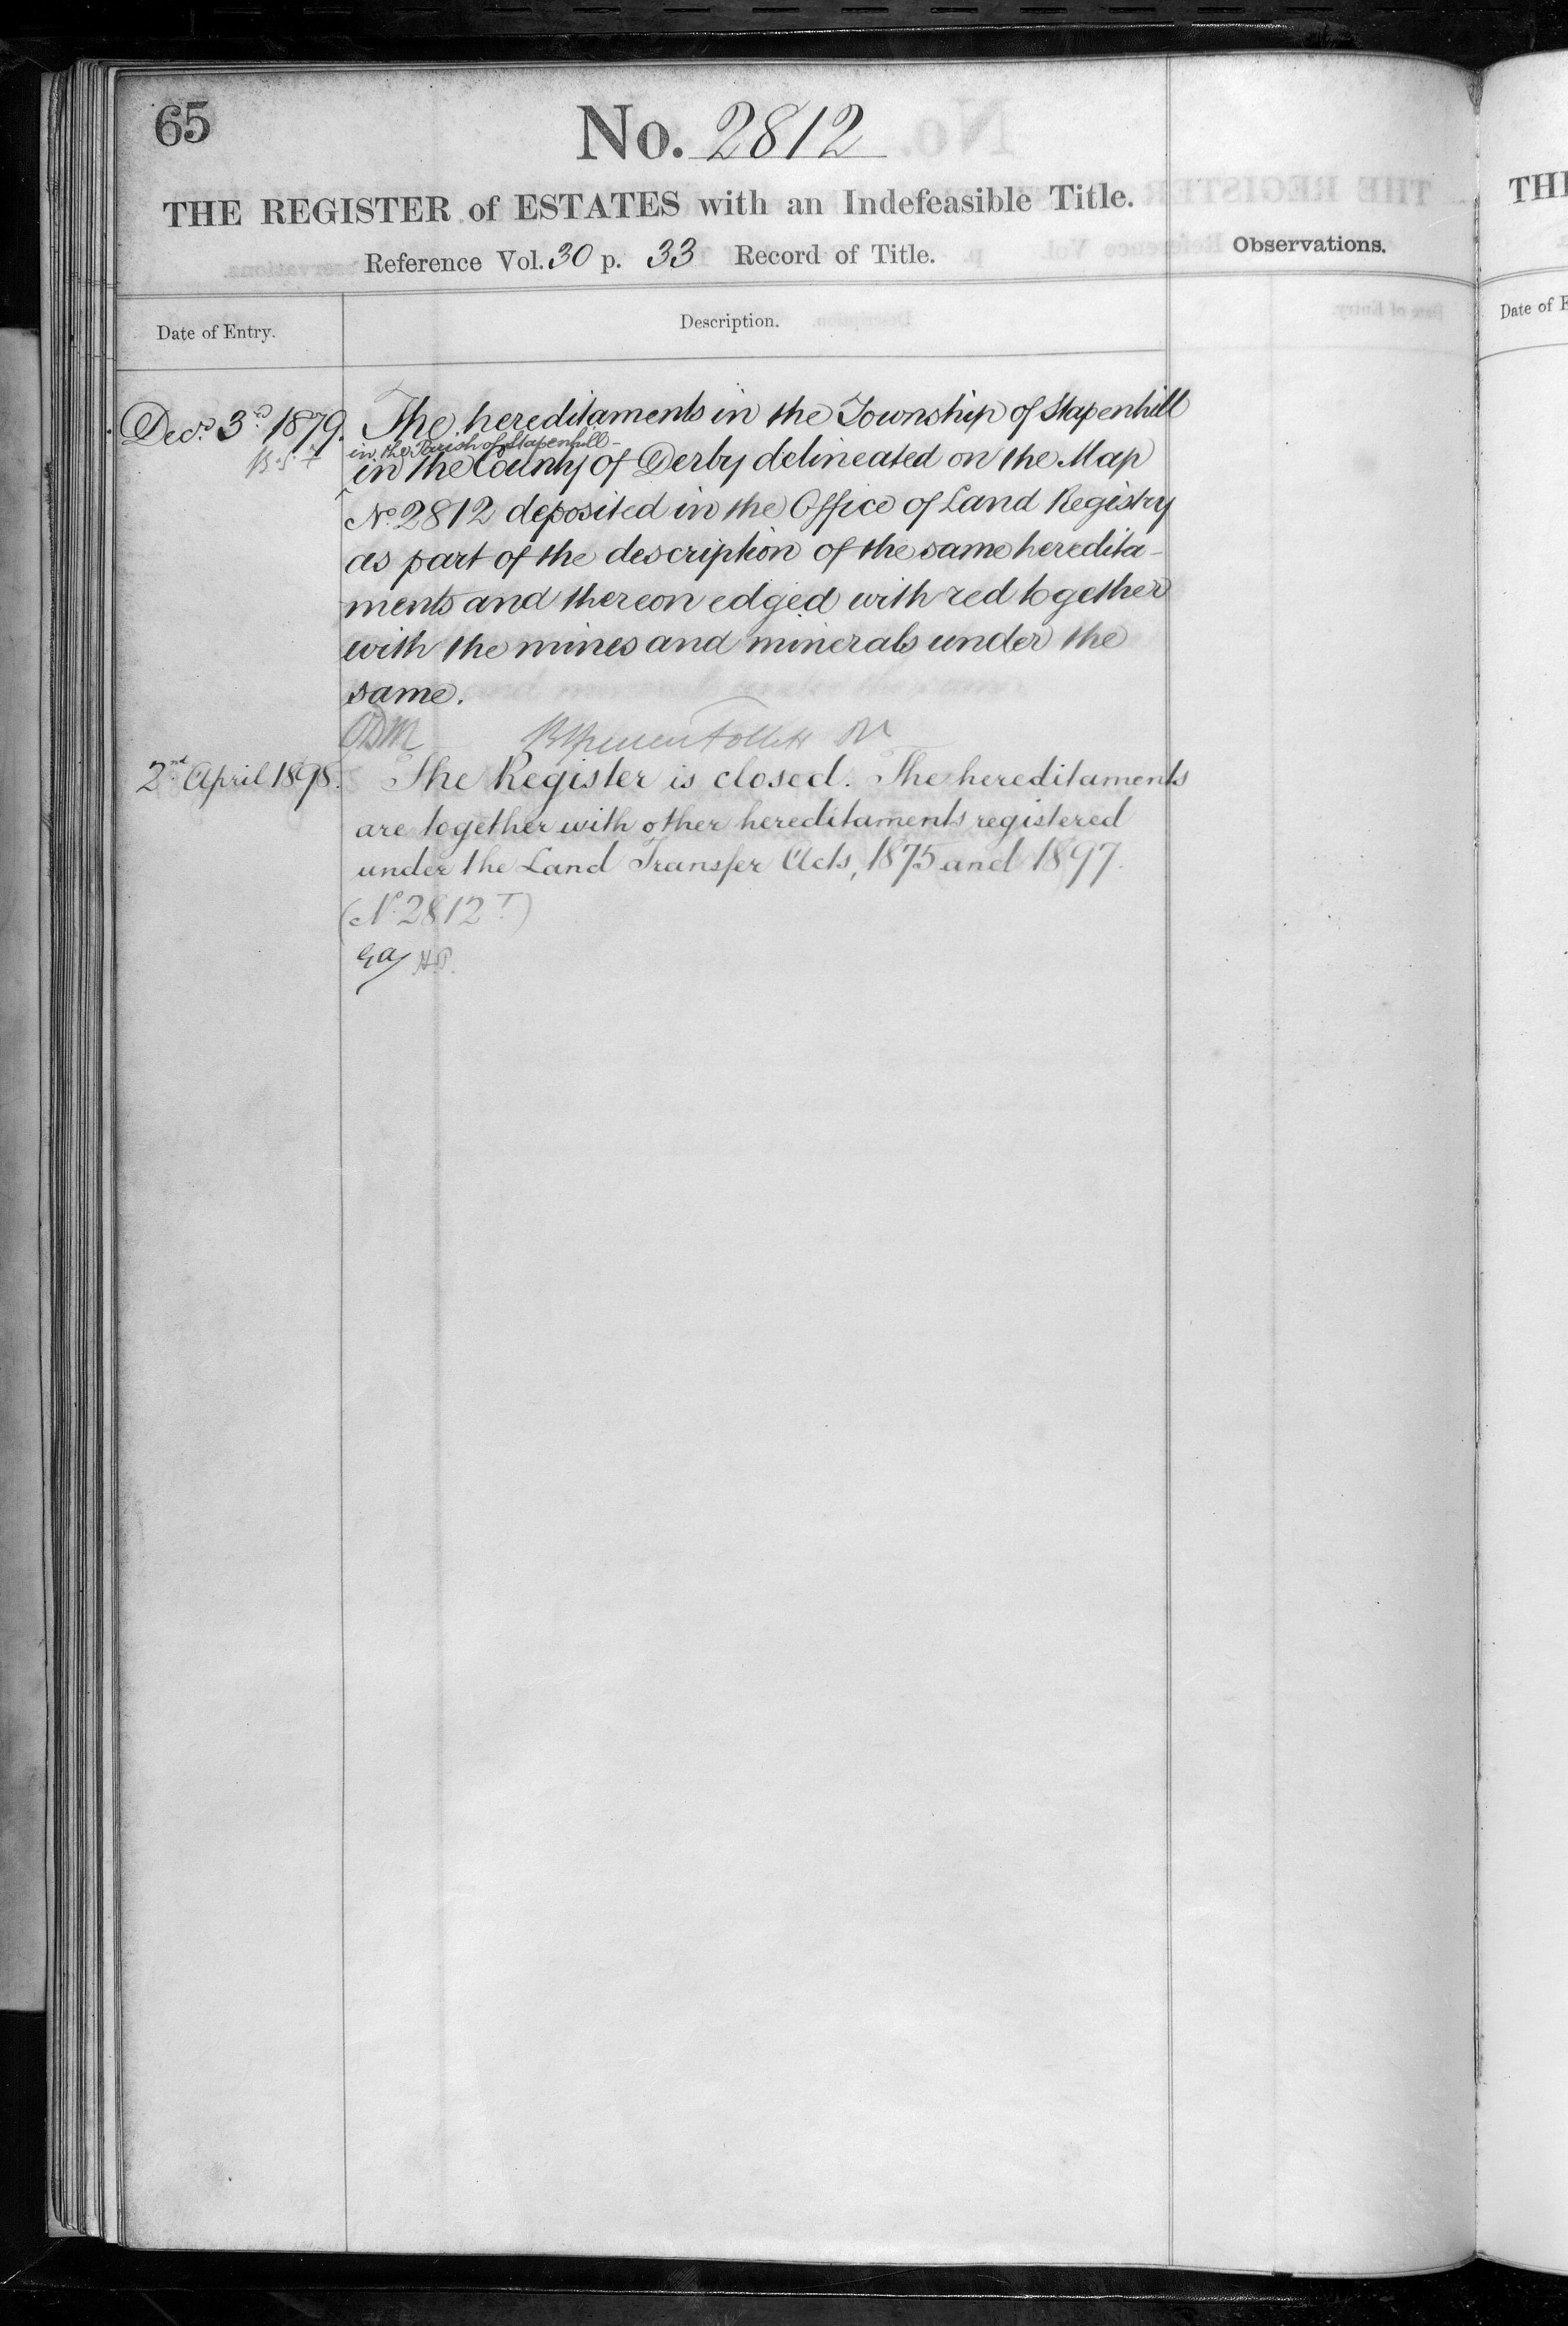 65
No. 2812
THE REGISTER of ESTATES with an Indefeasible Title.
Reference Vol. 30 p. 33 Record of Title.
Observations.
Date of Entry.
Description.
Decr 3rd 1879.
B.S.F
The hereditaments in the Township of Stapenhill
in the Parish of Stapenhill
in the County of Derby delineated on the Map
No 2812 deposited in the Office of Land Registry
as part of the description of the same heredita-
ments and thereon edged with red together
with the mines and minerals under the
same.
BSpencer Follett
2nd April 1898.
The Register is closed. The hereditaments
are together with other hereditaments registered
under the Land Transfer Acts, 1875 and 1897.
(No 2812 T)
H.P.
TH
Date of E